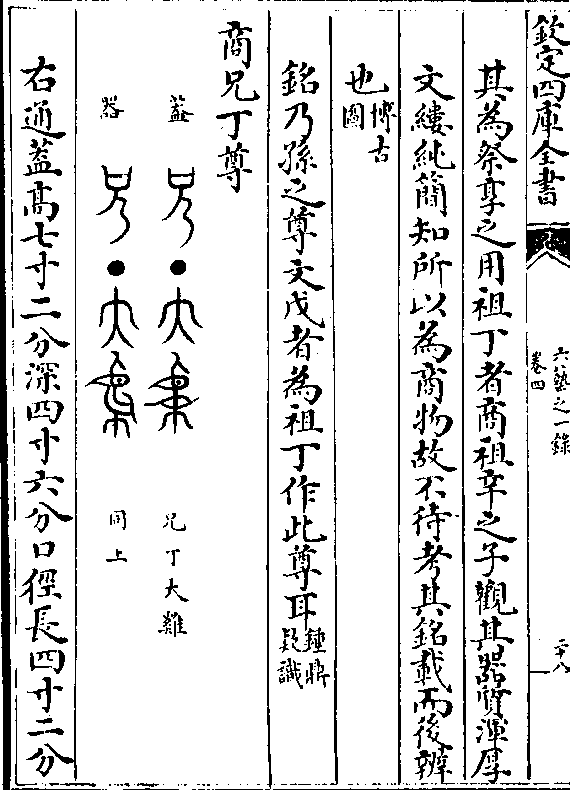 欽定四庫全書
六藝之一錄
卷四
二十八
其為祭享之用祖丁者商祖辛之子觀其器質渾厚
文縷純簡知所以為商物故不待考其銘載而後辨
也博古
圖
銘乃孫之尊文戊者為祖丁作此尊耳鐘鼎
欵識
商兄丁尊
蓋
兄丁大雞
器
同上
右通蓋髙七寸二分深四寸六分口徑長四寸二分